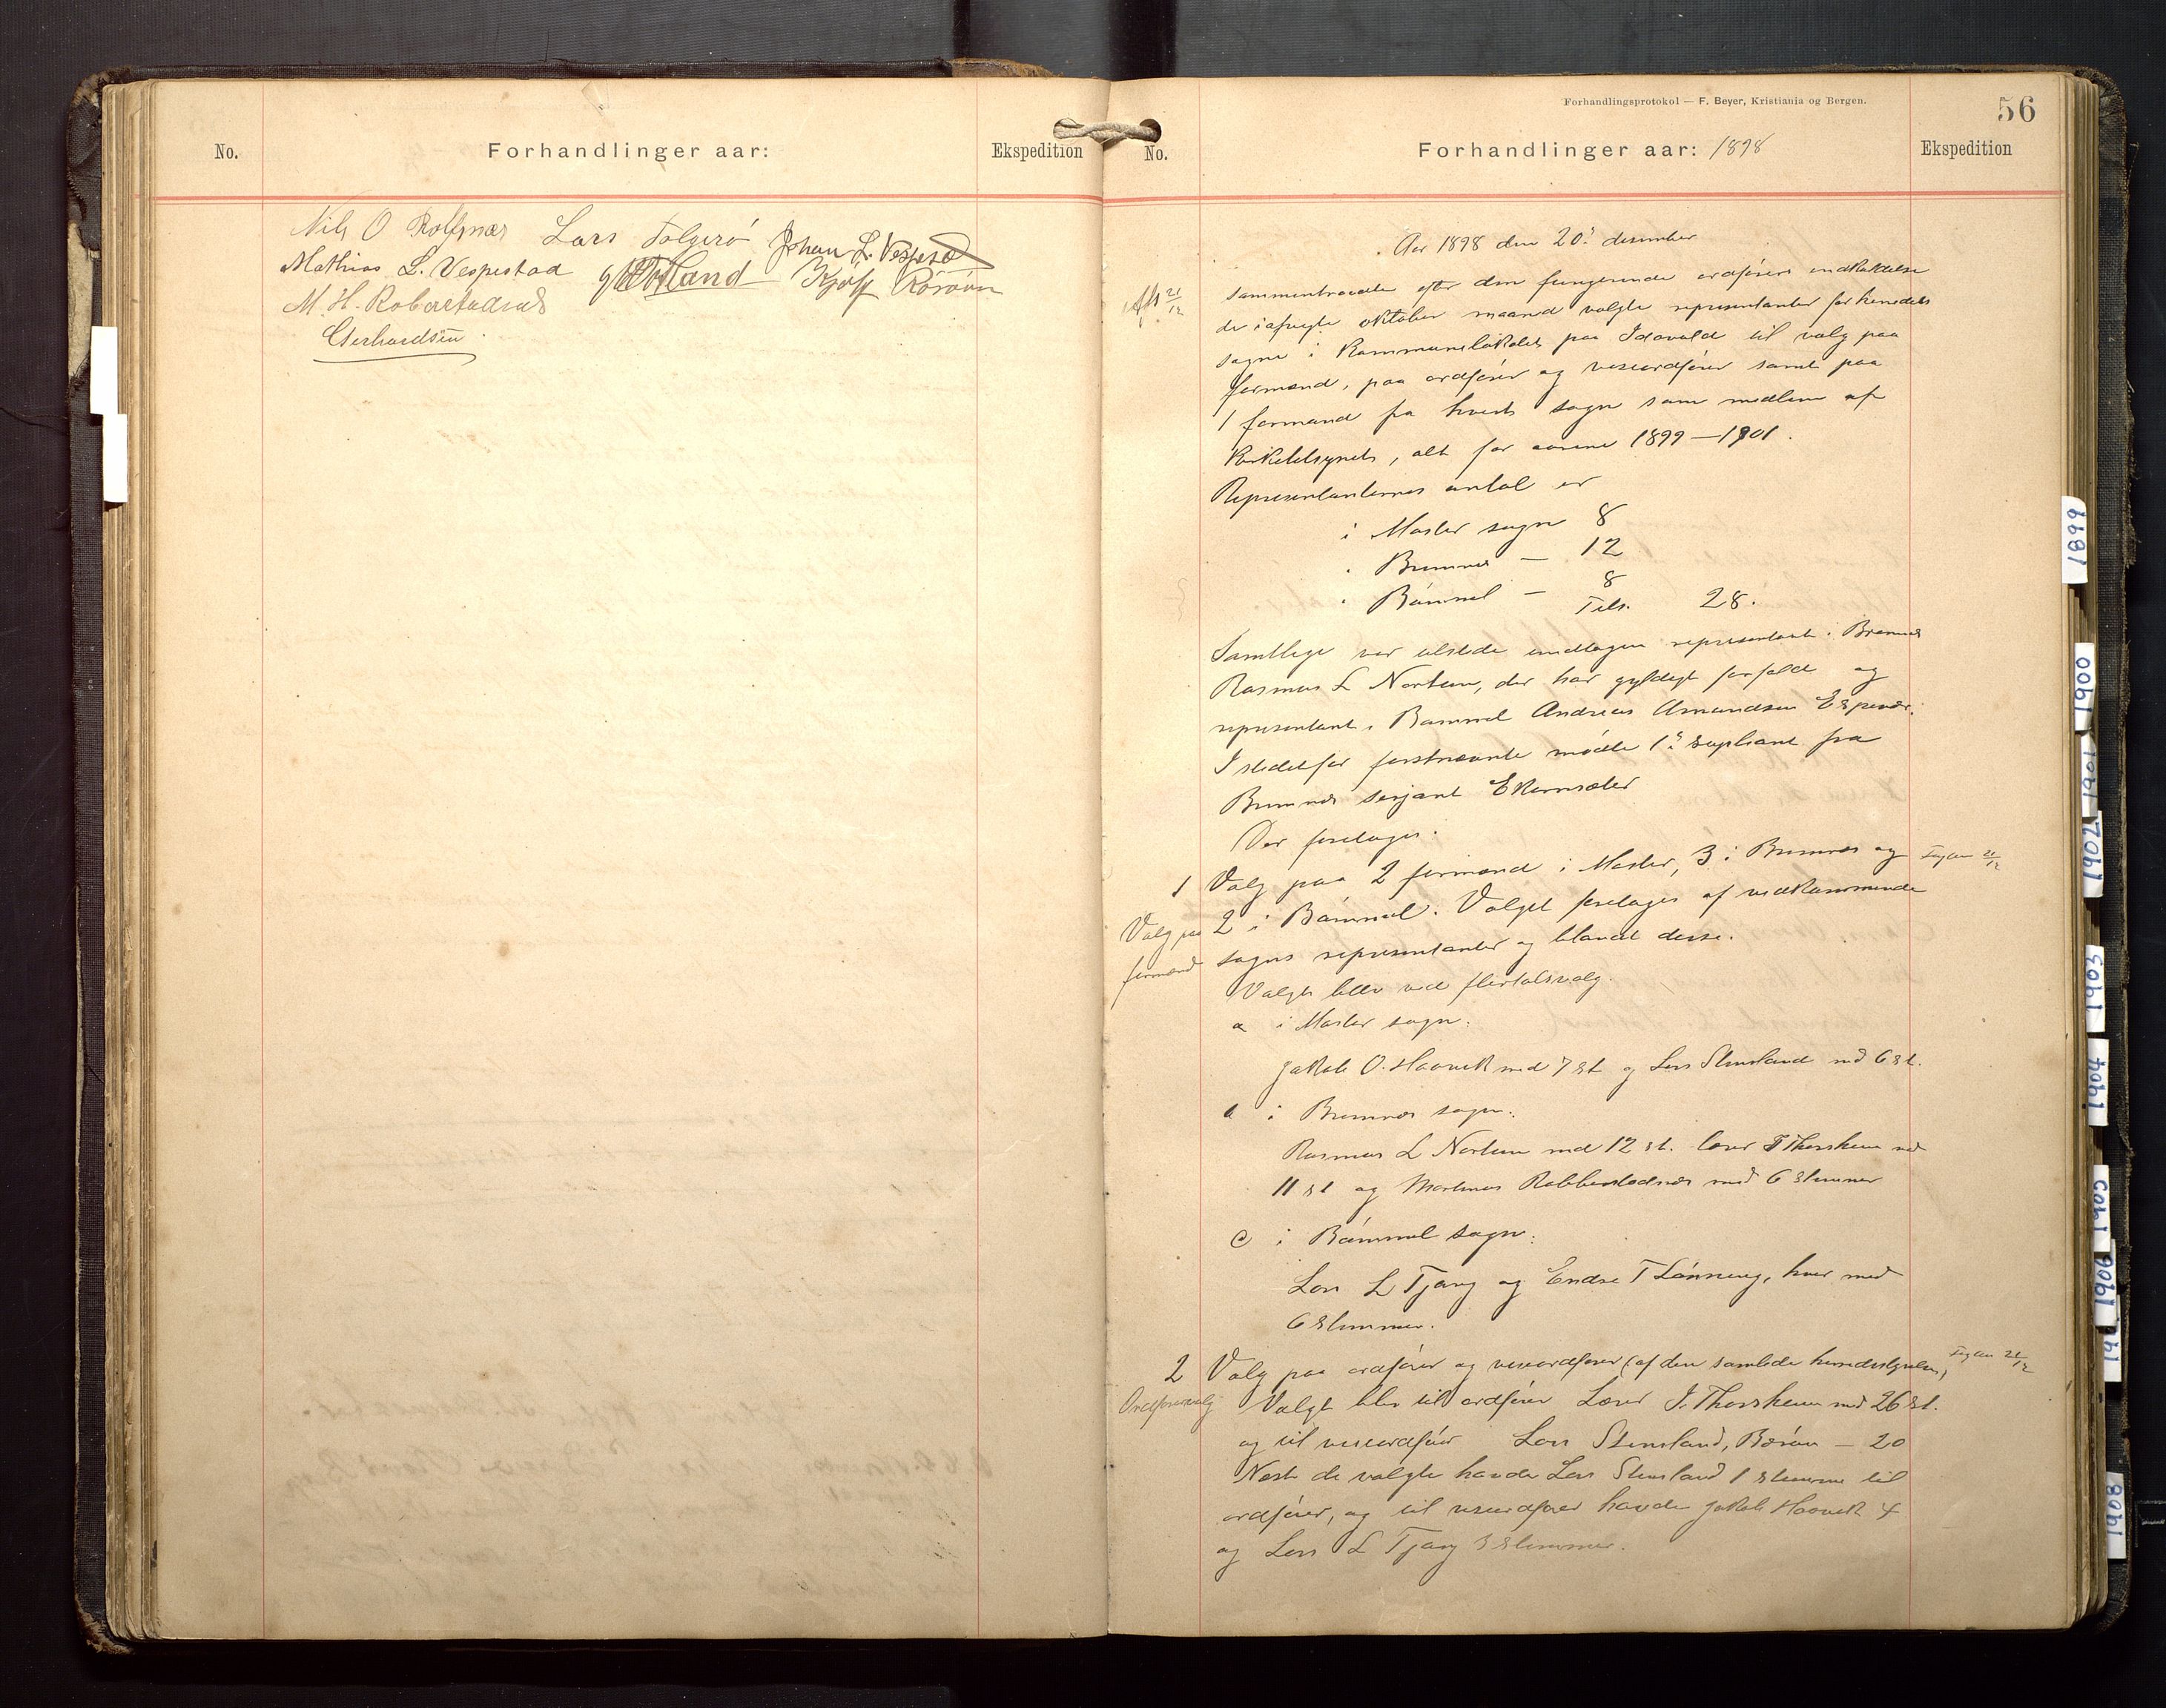 No.
Forhandlinger aar:
Ekspedition
Nils O Rolfsnæs Lars Folgerö Johan L. Vespestad
Mathias L. Vespestad Røröen
M. H. Robberstadnæs
Gerhardsen
Forhandlingsprotokol — F. Beyer, Kristiania og Bergen.
56
No.
Forhandlinger aar: 1898
Ekspedition
Aar 1898 den 20. desember
21/12
sammentraadte efter den fungerende ordförers indkaldelse
de i afvigte oktober maaned valgte representanter for herredets
sogne i Kommunelokalet paa Idavald til valg paa
formænd, paa ordförer og viseordförer samt paa
1 formand fra hvert sogn som medlem af
Kirketilsynet, alt for aarene 1899—1901.
Representanternes antal er
i Moster sogn 8
" Bremnes — 12
" Bömmel — 8
Tils. 28.
Samtlige var tilstede undtagen representant i Bremnes
Rasmus L Nortun, der har gyldigt forfald og
representant i Bømmel Andreas Amundsen Espevær.
I stedetfor førstnævnte mødte 1ste supleant fra
Bremnes serjant Ekornsæter
Der foretages:
1 Valg paa 2 formænd i Moster, 3 i Bremnes og
21/12
Valg paa
formænd
2 i Bömmel. Valget foretages af vedkommende
sogns representanter og blandt disse.
Valgte blev ved flertalsvalg.
a i Moster sogn:
Jakob O. Haavik med 7 st. og Lars Stensland med 6 st.
b i Bremnes sogn:
Rasmus L Nortun med 12 st. lærer J Thorsheim med
11 st og Martinus Robberstadnæs med 6 stemmer
c i Bömmel sogn:
Lars L Tjang og Endre T Lönning, hver med
6 stemmer.
2 Valg paa ordförer og viseordförer (af den samlede herredsstyrelse)
21/12
Ordförervalg
Valgt blev til ordförer Lærer J. Thorsheim med 26 st.
og til viseordförer Lars Stensland, Börøen — 20
Næst de valgte havde Lars Stensland 1 stemme til
ordförer, og til viseordförer havde Jakob Haavik 4
og Lars L Tjang 3 stemmer.
1899
1900
1901
1902
1903
1904
1905
1906
1908